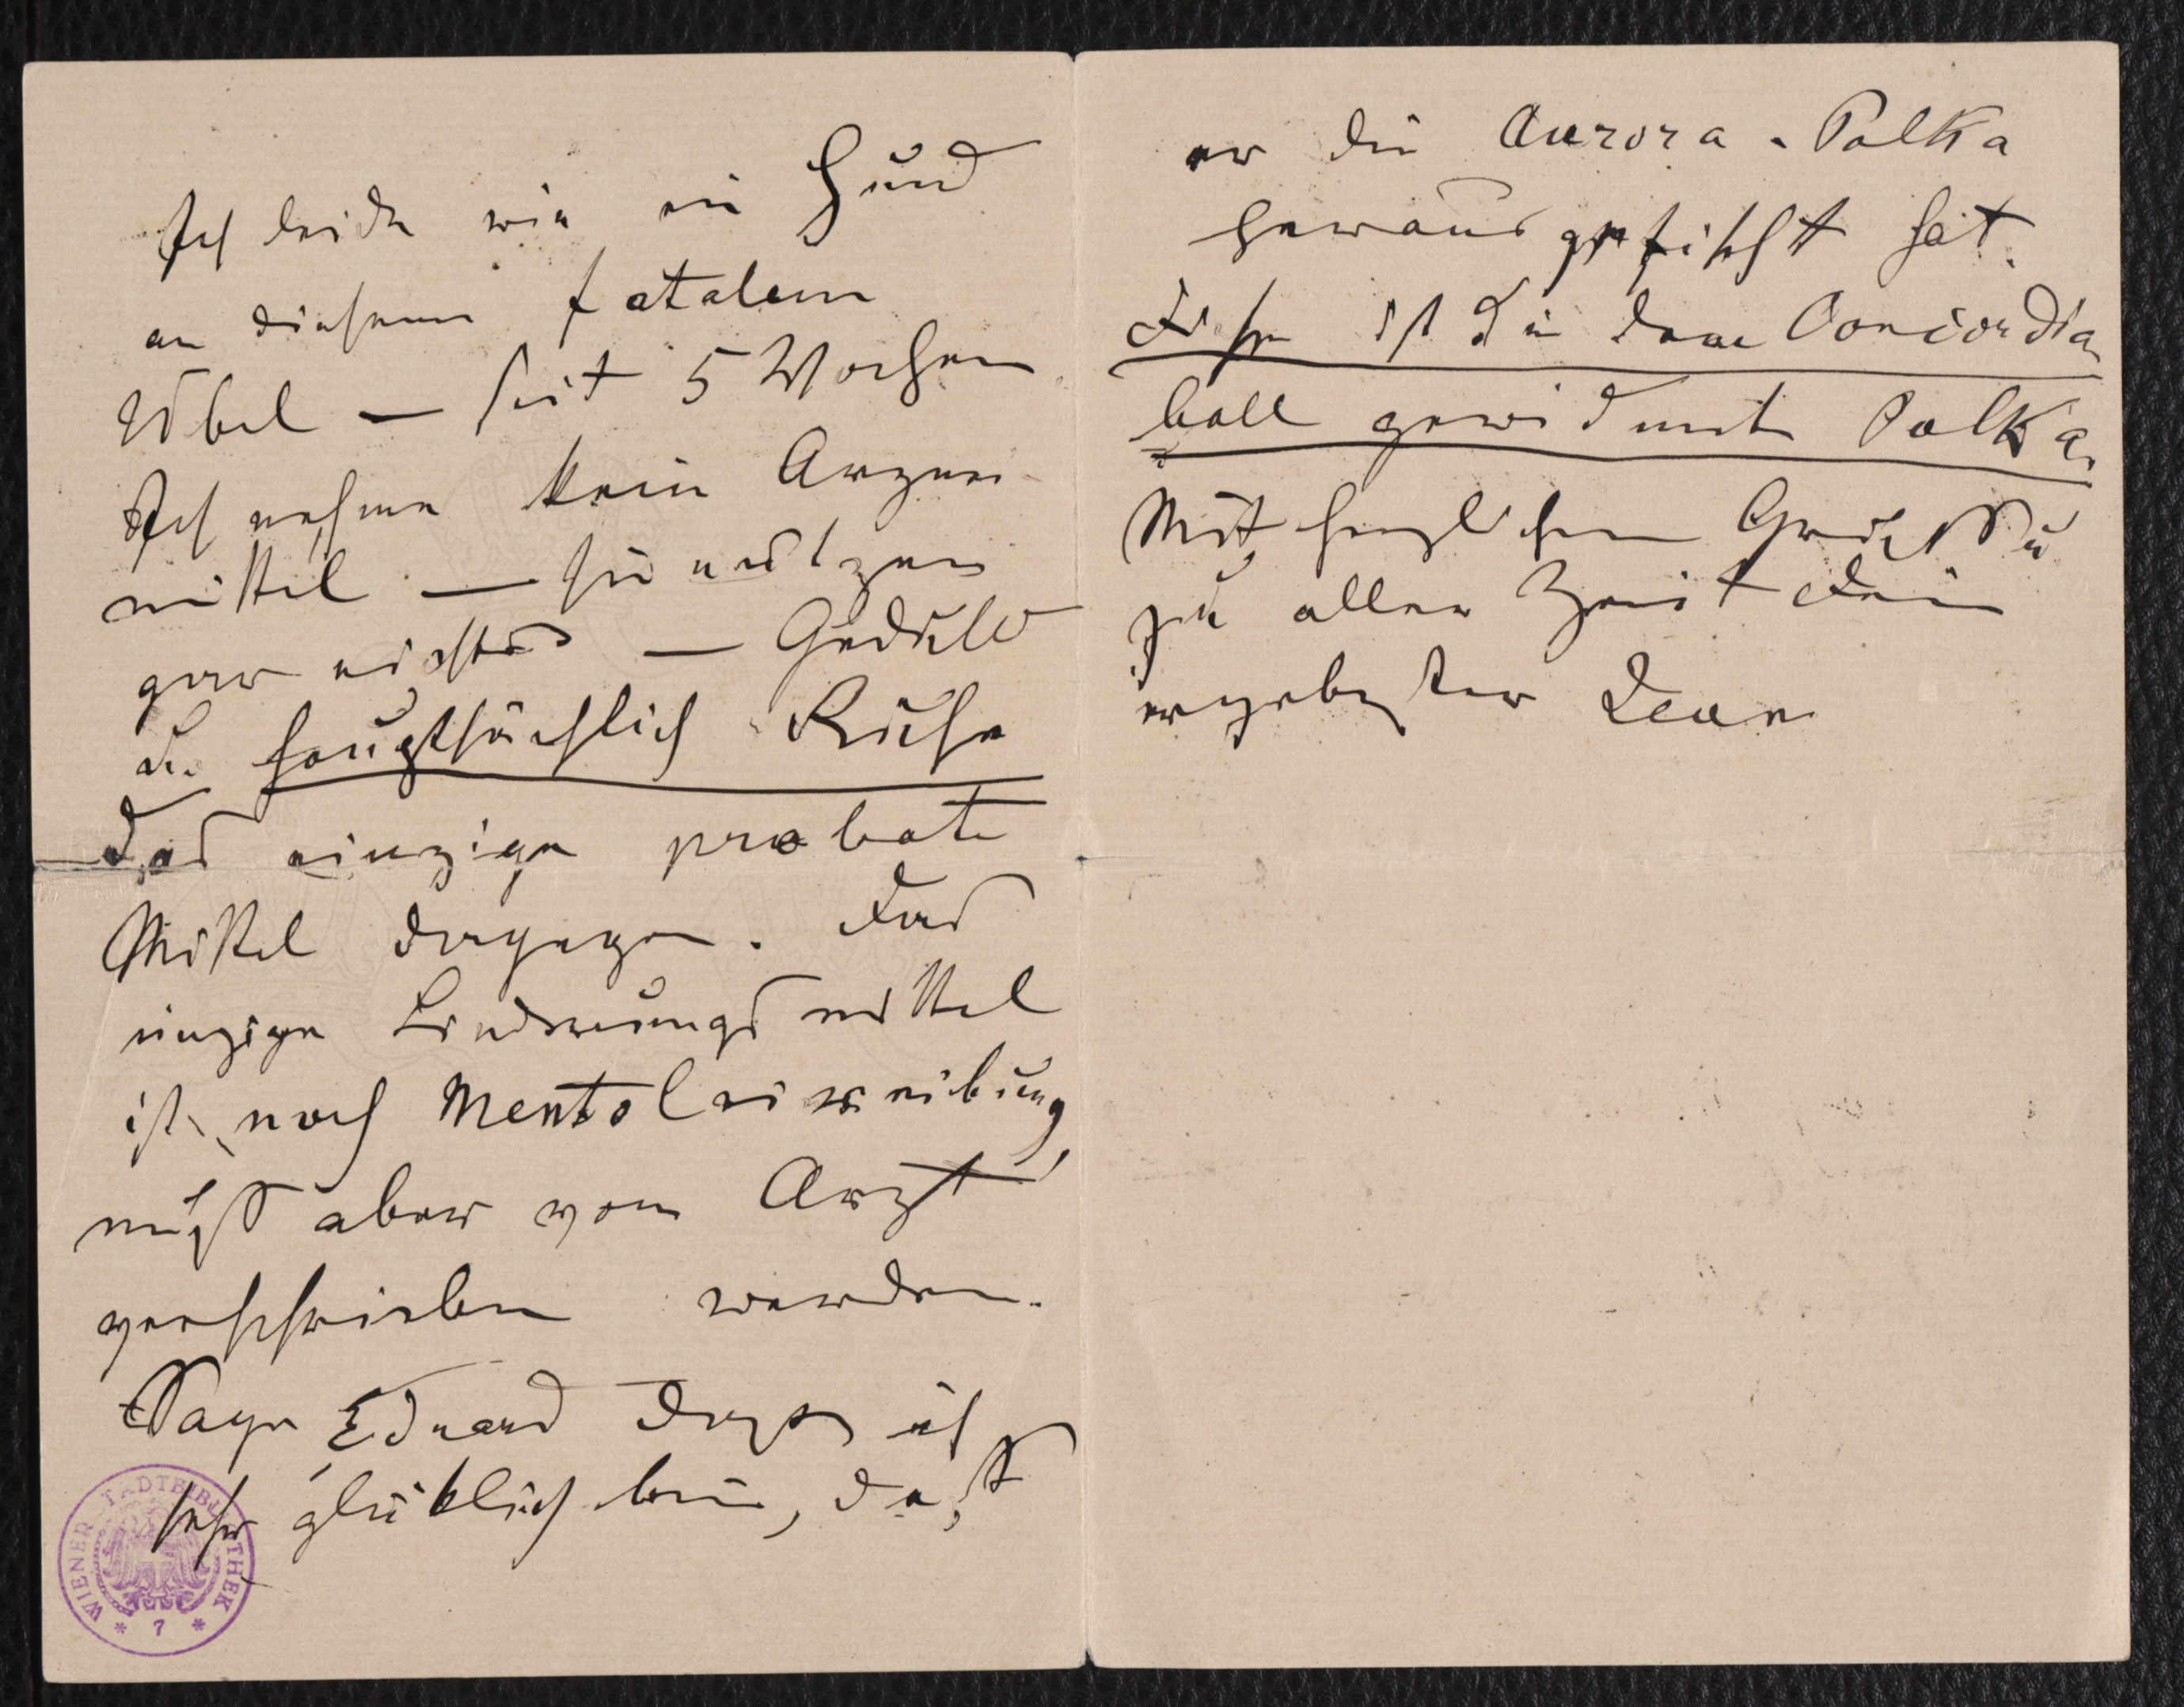 Ich leide wie ein Hund
an diesem fatalem
Übel — seit 5 Wochen
Ich nehme kein Arznei-
mittel — sie nützen
gar nichts — Geduld
u. hauptsächlich Ruhe
das einzige probate
Mittel dagegen. Das
einzige Linderungsmittel
ist noch Mentoleinreibung,
muß aber vom Arzt
verschrieben werden.
Sage Eduard daß ich
sehr glüklich bin, daß
WIENER STADTBIBLIOTHEK
* 7 *
er die Aurora-Polka
herausgefischt hat.
Diese ist die dem Concordia
ball gewidmete Polka.
Mit herzlichem Gruß
zu aller Zeit Dein
ergebster Jean